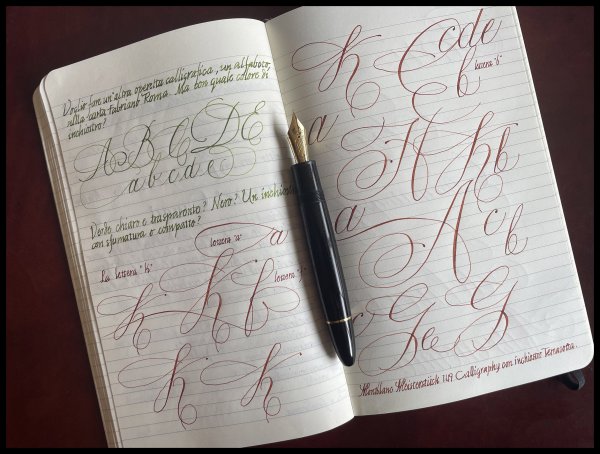 Voglio fare un'altra operetta calligrafica, un alfabeto,
sulla carta Fabriano Roma. Ma con quale colore di
inchiostro?
A B C D E
a b c d e
Verde chiaro e trasparente? Nero? Un inchiostro
con sfumatura o compatto?
lettera "a"
a
La lettera "h"
lettera "f"
h h f
h h
h Code
lettera "b"
b
a H h b
a A c b
Ge G
Montblanc Meisterstück 149 Calligraphy con inchiostro Terracotta.